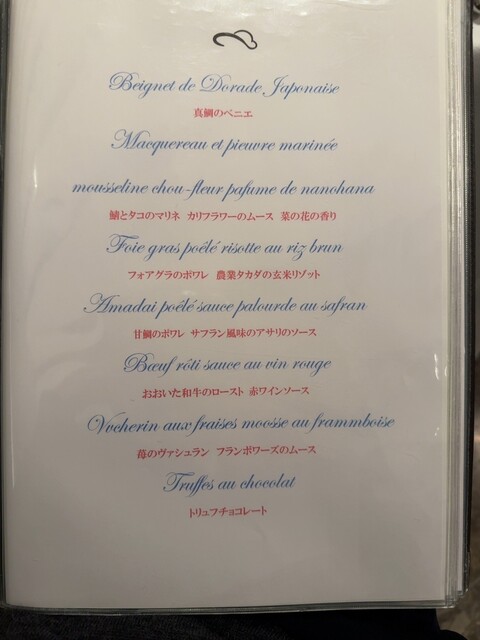 Beignet de Dorade Japonaise
真鯛のベニエ
Macquereau et pieuvre marinée
mousseline chou-fleur pafume de nanohana
鯖とタコのマリネ カリフラワーのムース 菜の花の香り
Foie gras poêlé risotte au riz brun
フォアグラのポワレ 農業タカダの玄米リゾット
Amadai poêlé sauce palourde au safran
甘鯛のポワレ サフラン風味のアサリのソース
Bœuf rôti sauce au vin rouge
おおいた和牛のロースト 赤ワインソース
Vvcherin aux fraises moosse au frammboise
苺のヴァシュラン フランボワーズのムース
Truffes au chocolat
トリュフチョコレート